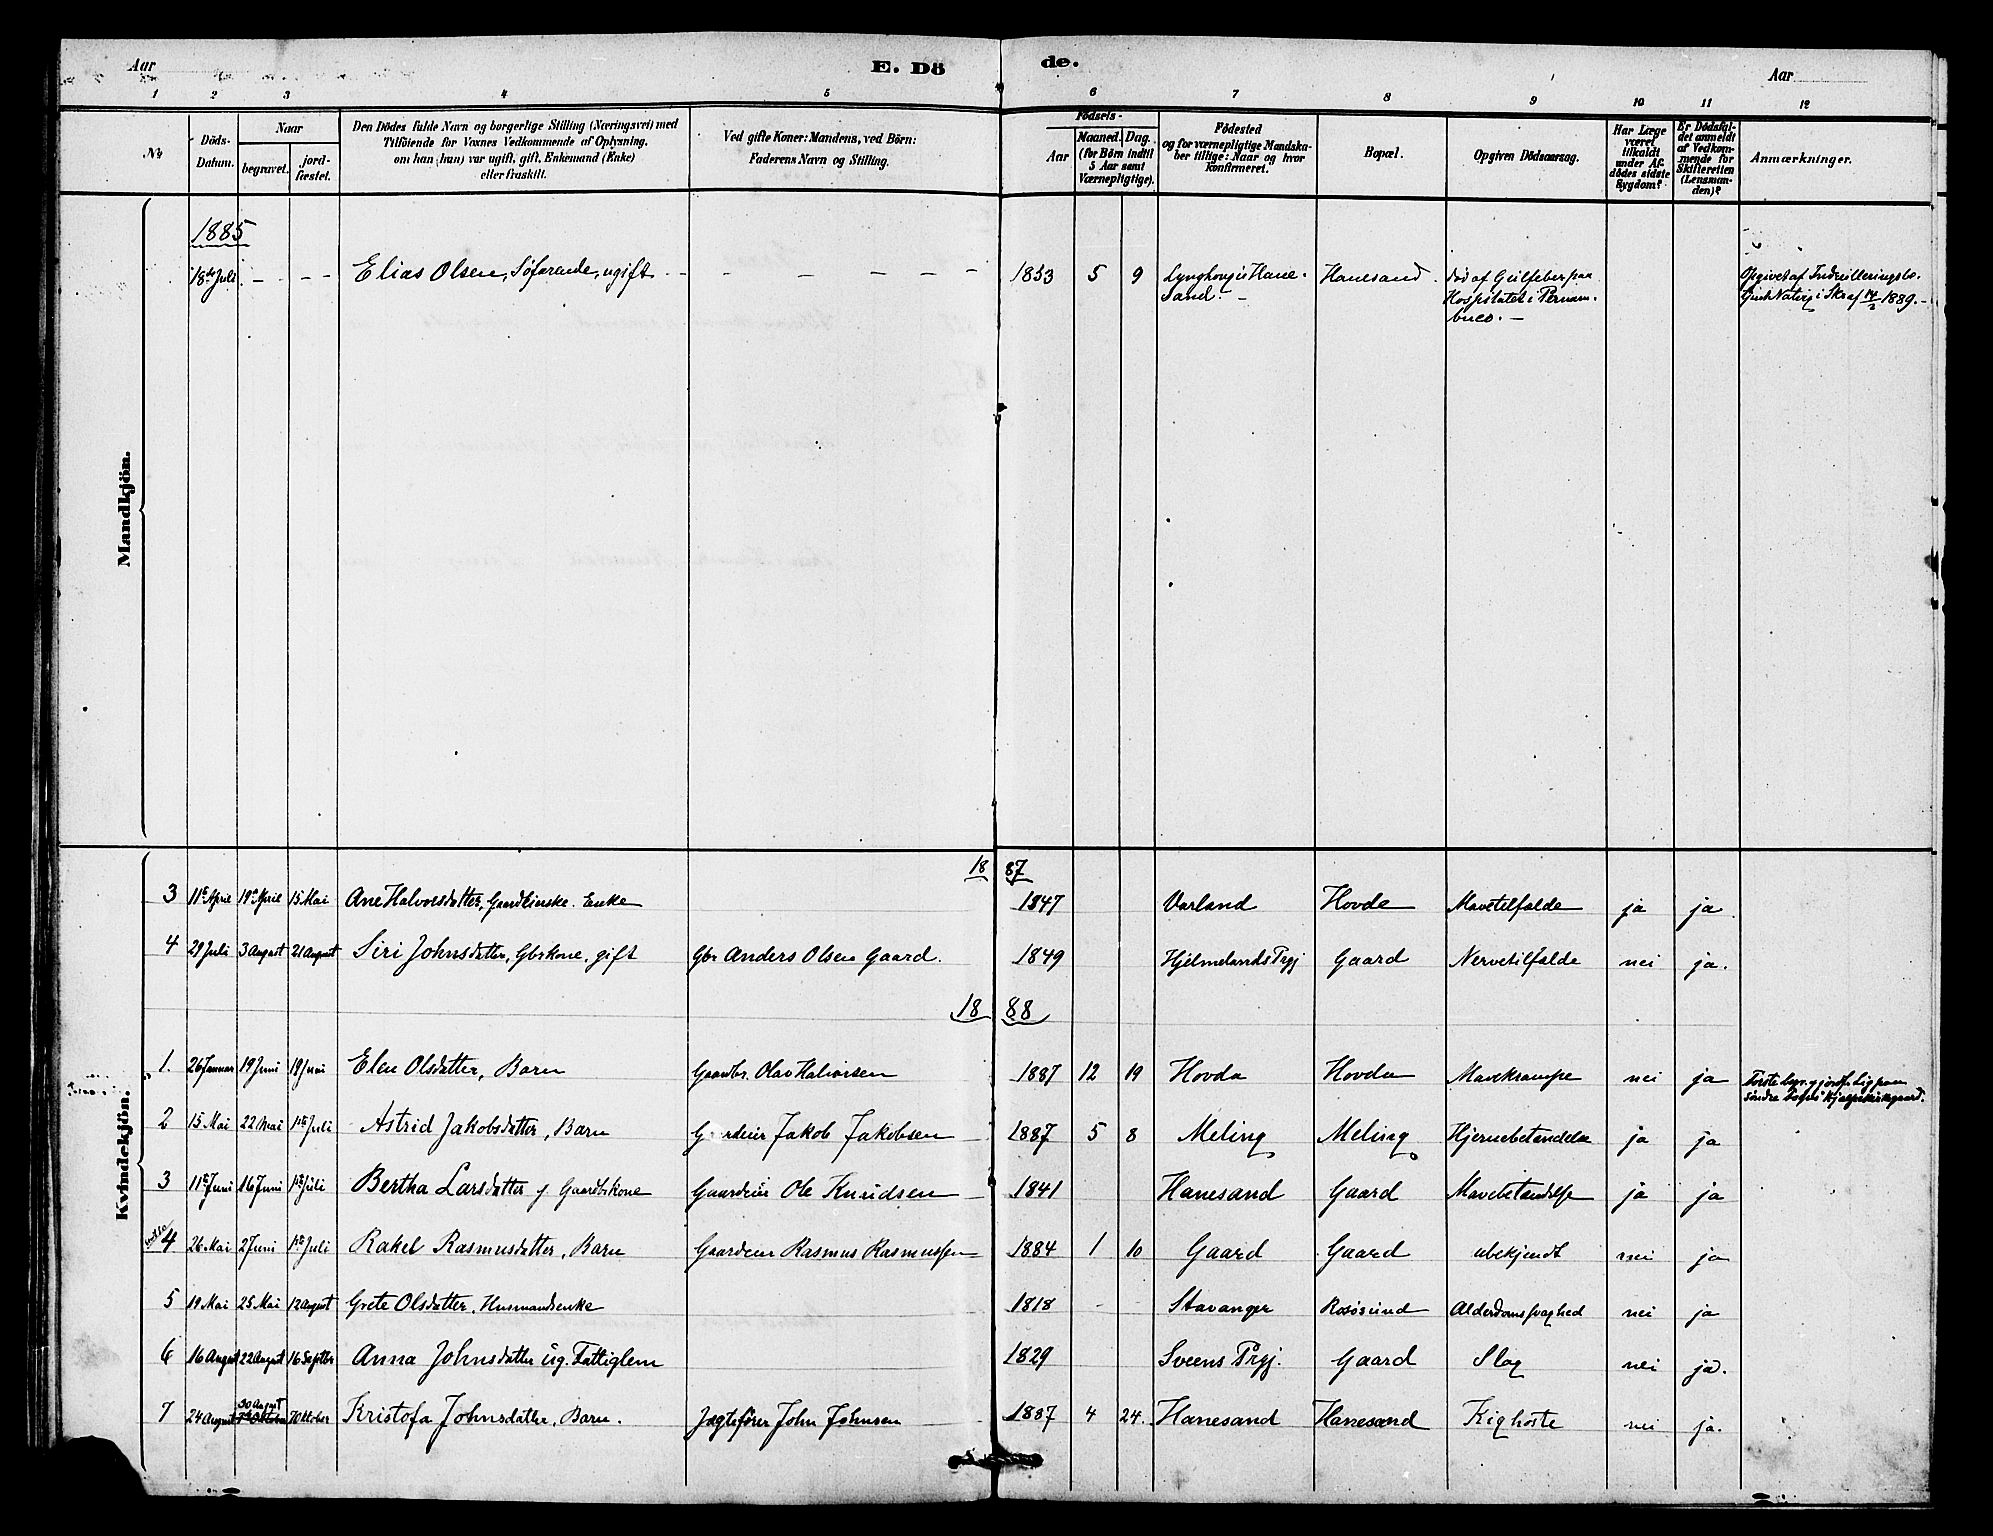 Aar
E. Dö
de.
Aar
1 2 3 4 5 6 7 8 9 10 11 12
No
Döds-
Datum.
Naar
begravet.
jord-
fæstet.
Den Dödes fulde Navn og borgerlige Stilling (Næringsvei) med
Tilföiende for Voxnes Vedkommende af Oplysning,
om han (hun) var ugift, gift, Enkemand (Enke)
eller fraskilt.
Ved gifte Koner: Mandens, ved Börn:
Faderens Navn og Stilling.
Födsels-
Aar
Maaned.
Dag.
(for Börn indtil
5 Aar samt
Værnepligtige).
Födested
og for værnepligtige Mandska-
ber tillige: Naar og hvor
konfirmeret.
Bopæl.
Opgiven Dödsaarsag.
Har Læge
været
tilkaldt
under Af-
dödes sidste
Sygdom?
Er Dödsfal-
det anmeldt
af Vedkom-
mende for
Skifteretten
(Lensman-
den)?
Anmærkninger.
Mandkjön.
1885
18de Juli - - - Elias Olsen, Söfarende, ugift - - - - - - 1853 5 9 Lynghoug i Hane-
sand. - Hanesand. död af Gulfeber paa
Hospitalet i Pernam-
buco. -
Opgivet af Indrulleringsbe.
i Skr af 14/2 1889. -
Kvindekjön.
18 87
3 11te April 19de April 15 Mai Ane Halvorsdatter, Enke 1847 Varland Hovde Mavetilfælde ja ja
4 29 Juli 3 August 21 August Siri Johnsdatter, Gbrkone, gift Gbr Anders Olsen Gaard. 1849 Hjelmelands Prgj Gaard Nervetilfælde nei ja.
18 88
1. 26 Januar 19 Juni 19 Juni Elen Olsdatter, Barn Gaardbr. Olav Halvorsen 1887 12 19 Hovda Hovda Mavekrampe nei ja
2 15 Mai 22 Mai 1ste Juli Astrid Jakobsdatter, Barn Gaardeier Jakob Jakobsen 1887 5 8 Meling Meling Hjernebetændelse ja ja
3 11te Juni 16 Juni 1ste Juli Bertha Larsdatter g Gaardbrkone Gaardeier Ole Knudsen 1841 Hanesand Gaard Mavebetændelse ja ja
4 26 Mai 2 Juni 1ste Juli Rakel Rasmusdatter, Barn Gaardeier Rasmus Rasmussen 1884 1 10 Gaard Gaard ubekjendt nei ja
5 19 Mai 25 Mai 12 August Grete Olsdatter, Husmandsenke 1818 - - Stavanger Rosösund Alderdomssvaghed nei ja
6 16 August 22 August 16 Septbr Anna Johnsdatter ug. Fattiglem 1829 Sveens Prgj. Gaard Slag nei ja.
30 August
7 24 August 7 Oktober Kristofa Johnsdatter, Barn. Jagtefører John Johnsen 1887 4 24. Hanesand Hanesand Kighoste nei ja.